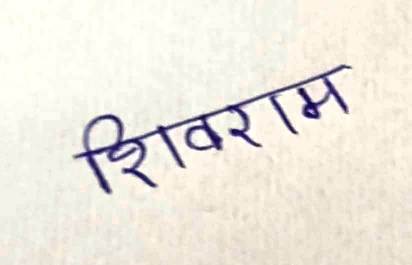 शिवराम